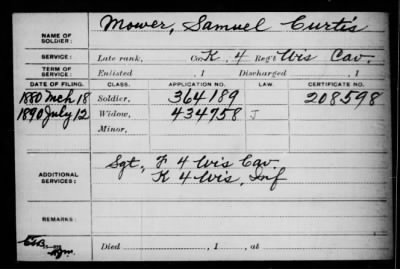 NAME OF SOLDIER: Mower, Samuel Curtis
SERVICE: Late rank, Co. K, 4 Reg't Wis Cav.
TERM OF SERVICE: Enlisted , 1 Discharged , 1
DATE OF FILING. CLASS. APPLICATION NO. LAW. CERTIFICATE NO.
1880 Mch 18 Soldier, 364189 208598
1890 July 12 Widow, 434758 J
Minor,
ADDITIONAL SERVICES: Sgt, F 4 Wis Cav.
K 4 Wis, Inf
REMARKS:
Died , 1 , at